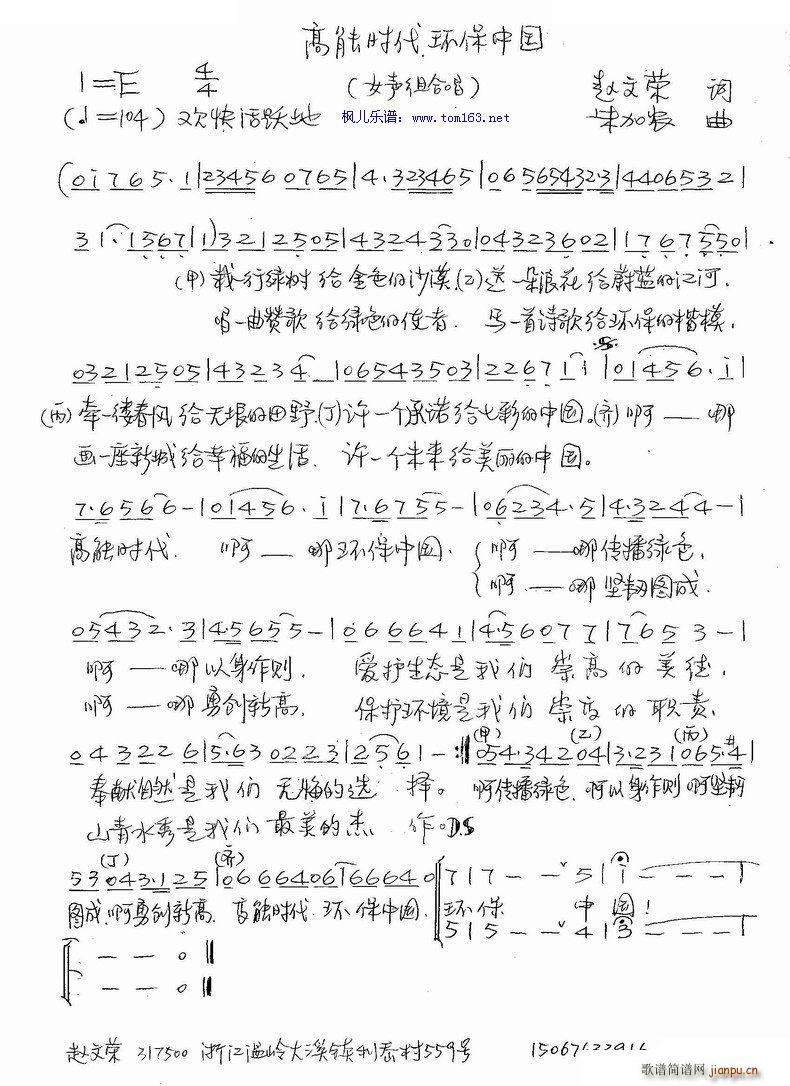 高能时代环保中国
1=E 4/4 (女声组合唱) 赵文荣 词
(♩=104) 欢快活跃地 枫儿乐谱：www.tom163.net 朱加农 曲
(0i765·1|234560765|4·323465|06565432·3|44065321|
31·1567|1)3212505|43243330|04323602|1767550|
(甲)栽一行绿树给金色的沙漠,(乙)送一朵浪花给蔚蓝的江河,
唱一曲赞歌给绿色的使者. 写一首诗歌给环保的楷模,
03212505|43234_|06543503|22671i|01456·i|
(丙)牵一缕春风给无垠的田野.(丁)许一个承诺给七彩的中国。(齐)啊——哪
画一座新城给幸福的生活. 许一个未来给美丽的中国。
7·6566-|01456·i|7·6755-|06234·5|4·3244-|
高能时代. 啊——哪环保中国. 啊——哪传播绿色,
啊——哪坚韧图成.
05432·3|4·5655-|0666641|4·56077|7653-|
啊——哪以身作则. 爱护生态是我们崇高的美德,
啊——哪勇创新高. 保护环境是我们崇高的职责,
043226|5·630223|2561-:‖(甲)054·342(乙)04|3·231(丙)065·#4|
奉献自然是我们无悔的选择。 啊传播绿色.啊以身作则啊坚韧
山青水秀是我们最美的杰作。DS
53(丁)043·125|(齐)06664061666640|717--ˇ5|i---|
图成.啊勇创新高. 高能时代.环保中国. 环保 中国!
515--ˇ4|3---|
--0‖
--0‖
赵文荣 317500 浙江温岭大溪镇利岙村559号
歌谱简谱网 jianpu.cn